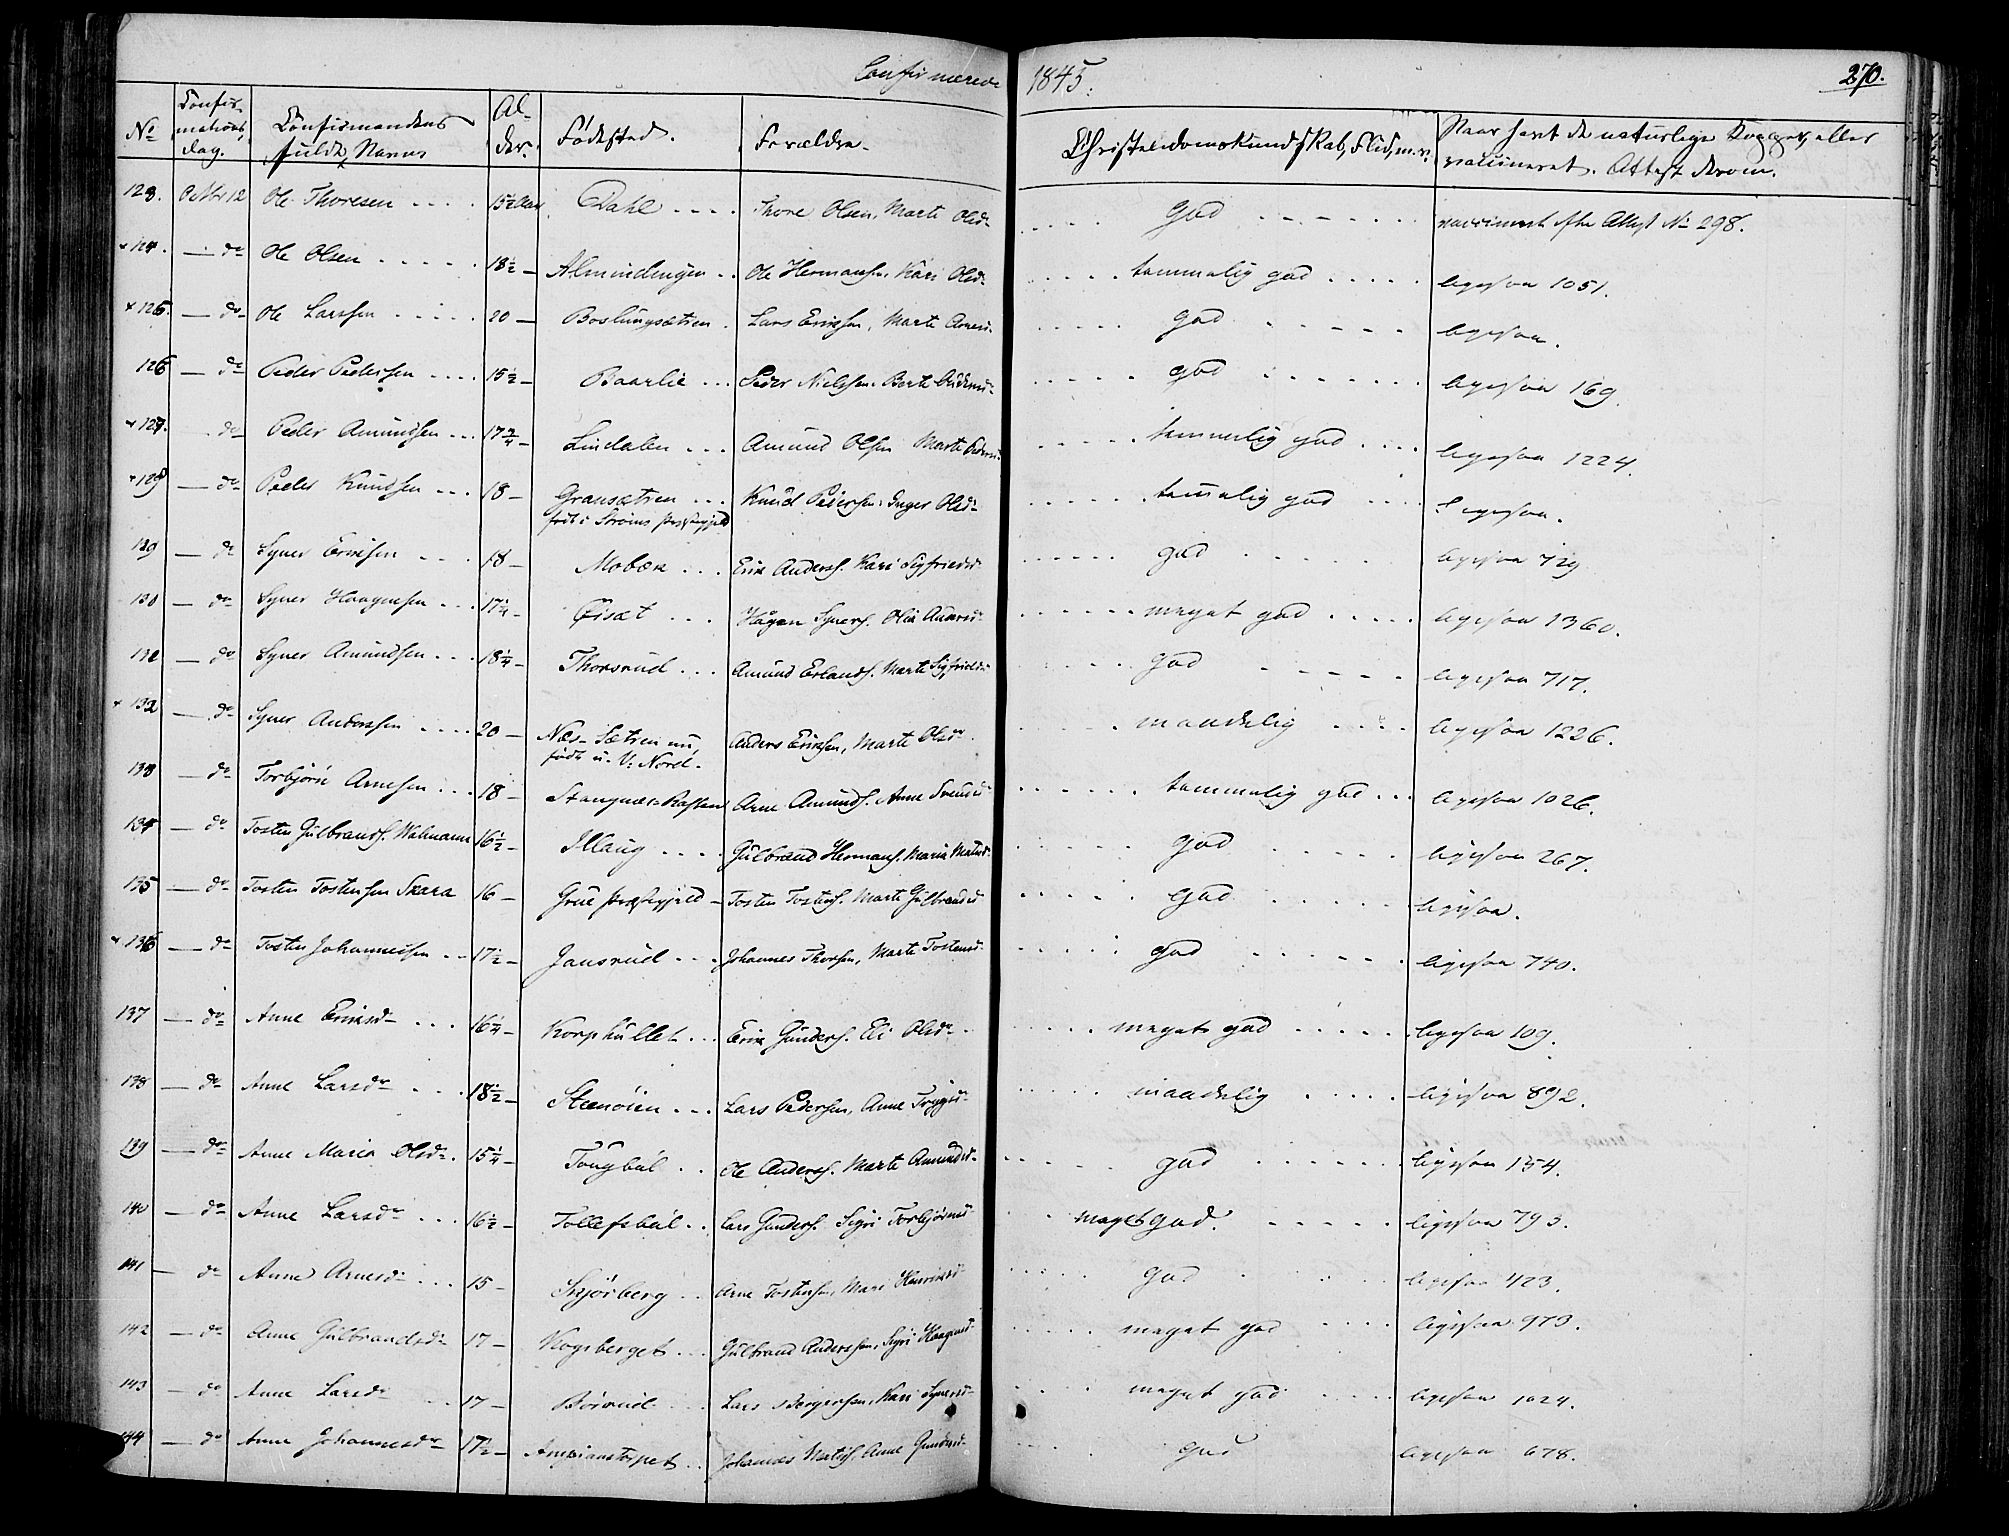 Confirmerede 1845. 270.
No Confirmations dag. Confirmandens fulde Navn Alder. Fødested. Forældre. Christendomskundskab, Flid, m.v. Naar havt de naturlige Kopper, eller vaccineret. Attest derom.
123. Octbr 12 Ole Thoresen 15½ Aar Dahl Thore Olsen, Marte Olsd. God vaccineret efter Attest No 298.
× 124. — do Ole Olsen 18½ — Almindingen Ole Hermansen, Kari Olsd. temmelig god ligesaa 1051.
× 125. — do Ole Larssen 20 — Boslungsætren Lars Eriksen, Marte Arnesd. god ligesaa.
126 — do Peder Pedersen 15½ — Baarlie Peder Nielssen, Berte god ligesaa 169.
× 127. do Peder Amundsen 17¾ — Lindalen Amund Olsen Marte Pedersd. temmelig god ligesaa 1224.
× 128 — do Peder Knudsen 18 — Gransætren Knud Pedersen, Inger Olsd. temelig god Ligesaa.
født i Strøms Præstegjeld
129 — do Syver Eriksen 18 — Mobæk Erik Anderss. Kari Sigfriedsd. god ligesaa 729
130 — do Syver Haagensen 17¼ — Øisæt Hagen Syvers. Olia meget god ligesaa 1360.
131 — do Syver Amundsen 18¼ — Thorsrud Amund Erlands. Marte Sigfriedsd. God ligesaa 717.
× 132 — do Syver Anderssen 20 — Næs-Sætren nu, Anders Eriksen, Marte Olsd. maadelig ligesaa 1226.
født i V: Nord.
133 — do Torbjørn Arnesen 18 — Stangnæs Arne Amunds. Anne Svendsd. temmelig god ligesaa 1026.
134 — do Tosten Gulbrands. Walmann 16½ — Illaug Gulbrand Hermans. Maria god ligesaa 267.
135 — do Tosten Tostensen Skara 16 — Grue Præstegjeld — Tosten Tostens. Marte Gulbrandsd God ligesaa.
× 136 — do Tosten Johannessen 17½ — Jansrud Johannes Thorsen, Marte Tostensd. god ligesaa 740.
137 — do Anne Eriksd. 16¼ — Korphullet Erik Gunders. Eli Olsd. meget god ligesaa 109.
138 — do Anne Larsd. 18½ — Steenøien Lars Pedersen, Anne Trygsd. maadelig ligesaa 892.
139 — do Anne Maria Olsd. 15¼ — Tougbøl Ole Anderss. Marte Amundsd. god ligesaa 154.
140 — do Anne Larsd. 16½ — Tollefsbøl Lars Gunders. Sigri Torbjørnsd. meget god. ligesaa 793.
141 — do Anne Arnesd. 15 — Skjørberg Arne Tostensen, Mari Henriksd. god ligesaa 423.
142 — do Anne Gulbrandsd. 17 — Kogsberget Gulbrand Anderssen, Sigri Haagensd. meget god ligesaa 973.
143 — do Anne Larsd. 17 — Børrud Lars Børgersen, Kari Syversd. meget god ligesaa 1024.
144 — do Anne Johannesd. 17½ — Johannes Mathis. Anne Gundersd. god ligesaa 678.